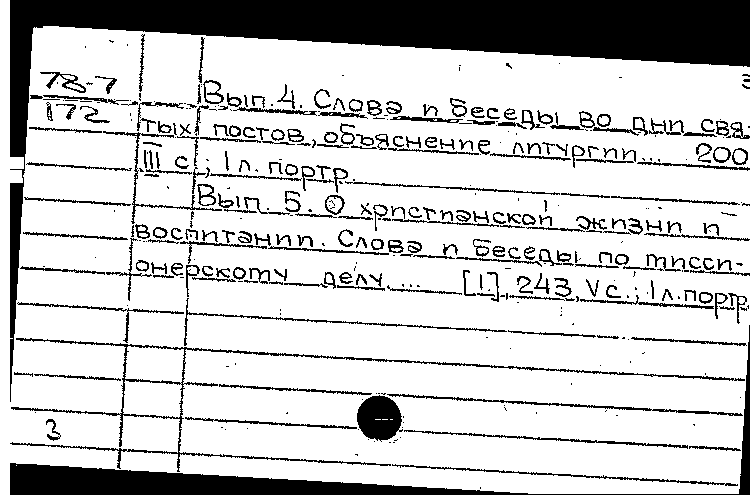 3
78-7
172
Вып. 4. Слова и беседы во дни свя-
тых постов, объяснение литургии... 200
III с.; 1 л. портр.
Вып. 5. О христианской жизни и
воспитании. Слова и беседы по мисси-
онерскому делу ... [1], 243, V с.; 1 л. портр.
3